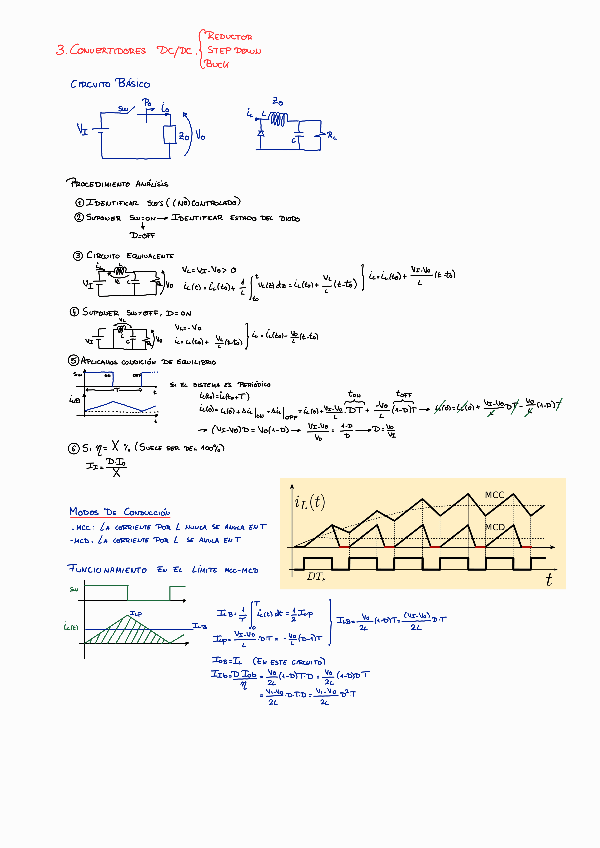 3. CONVERTIDORES DC/DC. { REDUCTOR
STEP DOWN
BUCK
CIRCUITO BÁSICO
SW P₀ i₀
V_I Z₀ V₀
Z₀
i_L L
C R_L
PROCEDIMIENTO ANÁLISIS
① IDENTIFICAR SW'S ((NO) CONTROLADO)
② SUPONER SW=ON → IDENTIFICAR ESTADO DEL DIODO
↓
D=OFF
③ CIRCUITO EQUIVALENTE
V_I L C V₀
V_L = V_I - V₀ > 0
i_L(t) = i_L(t₀) + 1/L ∫_{t₀}^{t} V_L(t) dt = i_L(t₀) + V_L/L (t-t₀) } i_L = i_L(t₀) + (V_I-V₀)/L (t-t₀)
④ SUPONER SW=OFF, D=ON
V_I V_L L C V₀
V_L = -V₀
i_L = i_L(t₀) + V_L/L (t-t₀) } i_L = i_L(t₀) - V₀/L (t-t₀)
⑤ APLICAMOS CONDICIÓN DE EQUILIBRIO
SW ON OFF
T t
i_L(t)
t
SI EL SISTEMA ES PERIÓDICO
i_L(t₀) = i_L(t₀+T) t_ON t_OFF
i_L(0) = i_L(0) + Δi_L|_ON + Δi_L|_OFF = i_L(0) + (V_I-V₀)/L DT + -V₀/L (1-D)T → i_L(0) = i_L(0) + (V_I-V₀)/L DT - V₀/L (1-D)T
→ (V_I-V₀)D = V₀(1-D) → (V_I-V₀)/V₀ = (1-D)/D → D = V₀/V_I
⑥ SI η = X % (SUELE SER DEL 100%)
I_I = D I₀ / X
MODOS DE CONDUCCIÓN
-MCC: LA CORRIENTE POR L NUNCA SE ANULA EN T
-MCD. LA CORRIENTE POR L SE ANULA EN T
i_L(t)
MCC
MCD
DT_s
t
FUNCIONAMIENTO EN EL LÍMITE MCC-MCD
SW
i_L(t) I_LP I_LB
I_LB = 1/T ∫_0^T i_L(t) dt = 1/2 I_LP
I_LP = (V_I-V₀)/L DT = -V₀/L (D-1)T
I_LB = V₀/2L (1-D)T = (V_I-V₀)/2L D·T
I_OB = I_L (EN ESTE CIRCUITO)
I_Ib = D I_Ob / η = V₀/2L (1-D)T·D = V₀/2L (1-D)DT
= (V_I-V₀)/2L D·T·D = (V_I-V₀)/2L D²T